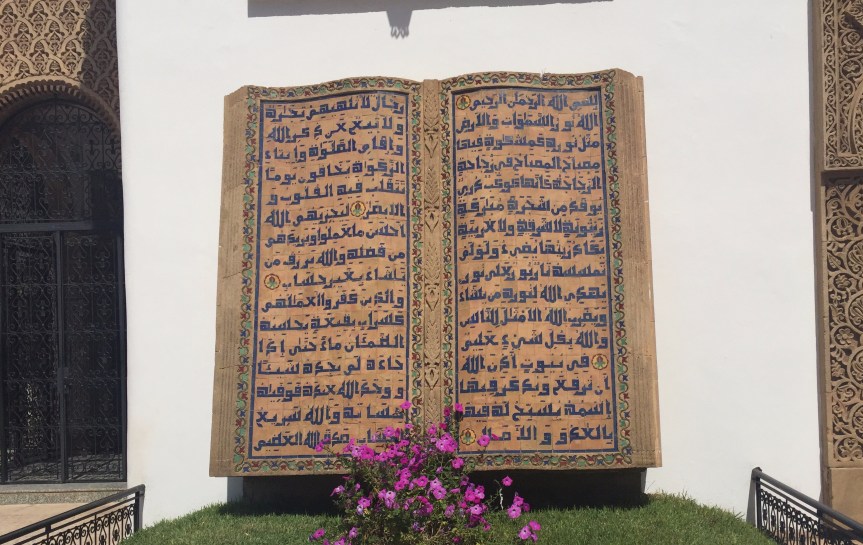 بسم الله الرحمن الرحيم
الله نور السموات والأرض
مثل نوره كمشكوة فيها
مصباح المصباح في زجاجة
الزجاجة كأنها كوكب دري
يوقد من شجرة مباركة
زيتونة لا شرقية ولا غربية
يكاد زيتها يضيء ولو لم
تمسسه نار نور على نور
يهدي الله لنوره من يشاء
ويضرب الله الأمثل للناس
والله بكل شيء عليم
في بيوت أذن الله
أن ترفع ويذكر فيها
اسمه يسبح له فيها
بالغدو والآصال
رجال لا تلهيهم تجرة
ولا بيع عن ذكر الله
وإقام الصلوة وإيتاء
الزكوة يخافون يوما
تتقلب فيه القلوب و
الأبصر ليجزيهم الله
أحسن ما عملوا ويزيدهم
من فضله والله يرزق من
يشاء بغير حساب
والذين كفروا أعملهم
كسراب بقيعة يحسبه
الظمئان ماء حتى إذا
جاءه لم يجده شيئا
و وجد الله عنده فوفيه
حسابه والله سريع
الحساب صدق الله العظيم